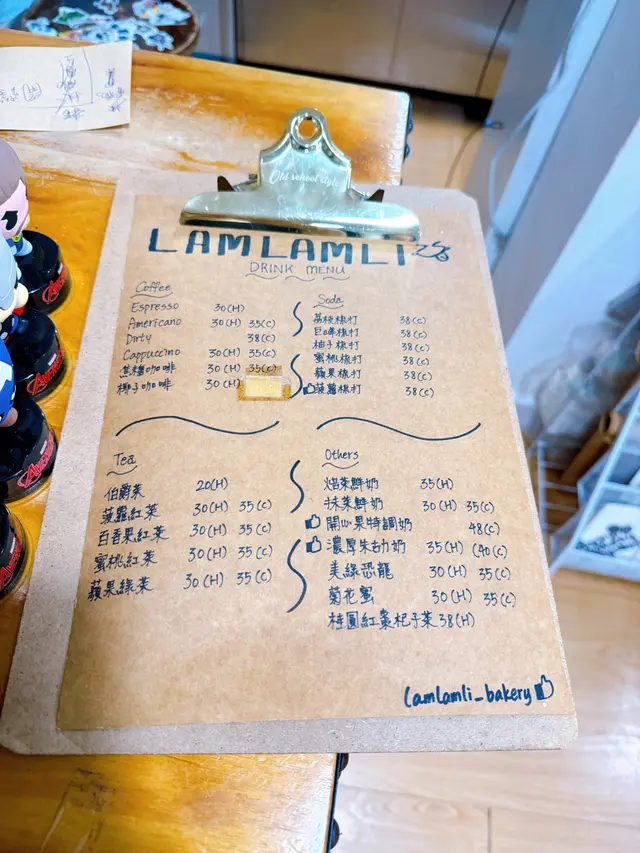 Old school style
LAMLAMLI
DRINK MENU
Coffee
Espresso 30(H)
Americano 30(H) 35(C)
Dirty 38(C)
Cappuccino 30(H) 35(C)
黑糖咖啡 30(H) 35(C)
椰子咖啡 30(H)
Soda
荔枝梳打 38(C)
巨峰梳打 38(C)
柚子梳打 38(C)
蜜桃梳打 38(C)
蘋果梳打 38(C)
菠蘿梳打 38(C)
Tea
伯爵茶 20(H)
菠蘿紅茶 30(H) 35(C)
百香果紅茶 30(H) 35(C)
蜜桃紅茶 30(H) 35(C)
蘋果綠茶 30(H) 35(C)
Others
焙茶鮮奶 35(H)
抹茶鮮奶 30(H) 35(C)
開心果特調奶 48(C)
濃厚朱古力奶 35(H) (40(C)
美綠恐龍 30(H) 35(C)
菊花蜜 30(H) 35(C)
桂圓紅棗杞子茶 38(H)
lamlamli_bakery